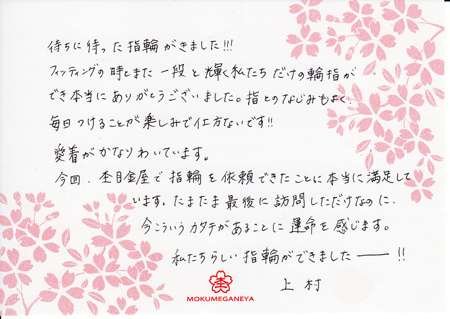 待ちに待った指輪がきました!!!
フィッティングの時とまた一段と輝く私たちだけの輪指が
でき本当にありがとうございました。指とのなじみもよく、
毎日つけることが楽しみで仕方ないです!!
愛着がかなりわいています。
今回、杢目金屋で指輪を依頼できたことに本当に満足して
います。たまたま最後に訪問しただけなのに、
今こういうカタチがあることに運命を感じます。
私たちらしい指輪ができました――!!
上村
MOKUMEGANEYA